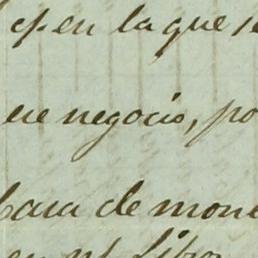 en la que se
ese negocio, po
Casa de mone
Libro